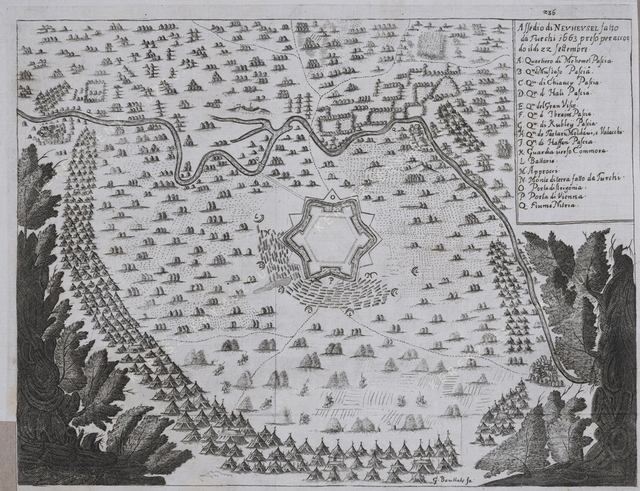 236
Assedio di NEVHEVSEL fatto
da Turchi 1663 preso per accor
do il di 22 settembre
A. Quartiero di Mehemet Passia
B Qo. di Mustafa Passia
C Qo. di Passia
D Qo. d' Hali Passia
E Qo. del Gran Visir
F Qo. d' Ibraim Passia
G Qo. di Passia
H Qo. de Tartari Moldavi, e Valacchi
I Qo. di Hassan Passia
K Guardia verso Commora
L Batterie
M Approcci
N Monte di terra fatto da Turchi
O Porta di Strigonia
P Porta di Vienna
Q Fiume Nitria
O
P
G Bouttats fe.